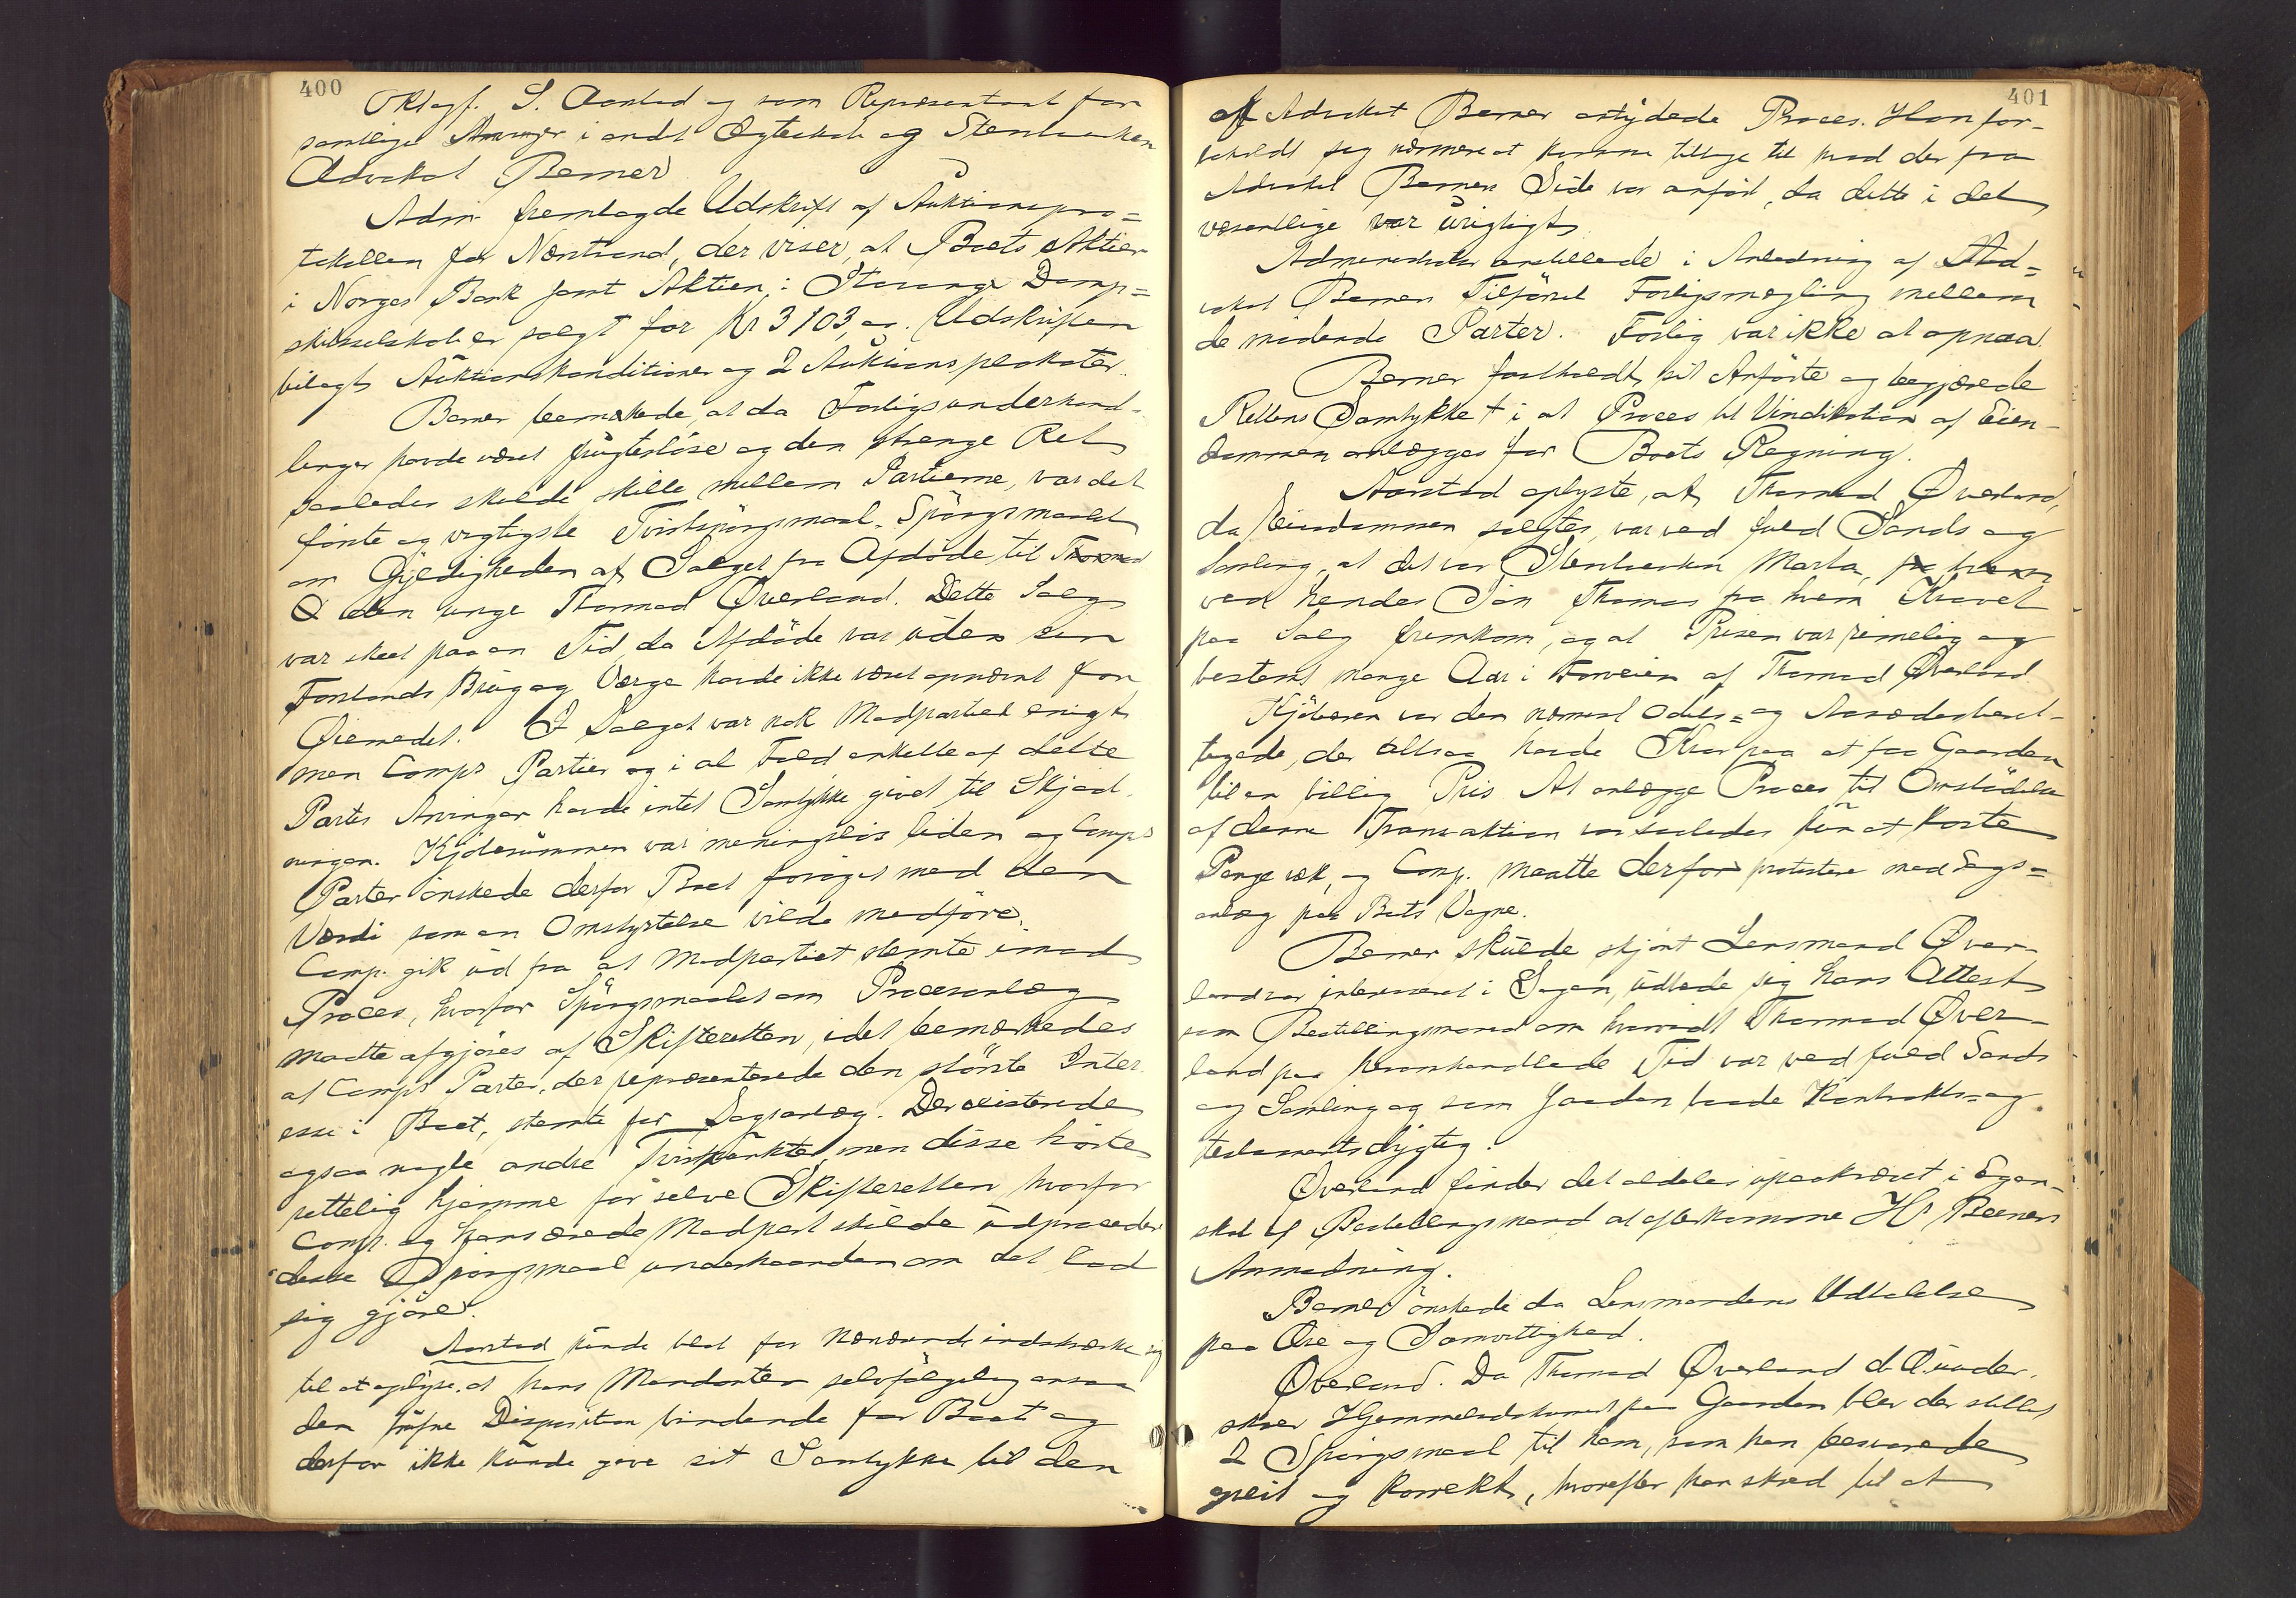 400
Oklagf. S. Aarstad og som Repræsentant for
samtlige Arvinger i andet Ægteskab og Stervboenken
Advokat Berner
Adm. fremlagde Udskrift af Auktionspro=
tokollen for Nærstrand, der viser, at Boets Aktier
i Norges Bank samt Aktien i Stavanger Damp=
skibsselskab er solgt for Kr 3103,00. Udskriften
bilagt Auktionskonditioner og 2 Auktionsplakater.
Berner bemærkede, at da Forligsunderhand-
linger havde været frugtesløse og den strenge Ret
saaledes skulde skille mellem Partierne, var det
første og vigtigste Tvistspørgsmaal, Spørgsmaalet
om Gyldigheden af Salget fra Afdøde til Thormod
Ø den unge Thormod Øverland. Dette Salg
var skeet paa en Tid, da Afdøde var uden sin
Forstands Brug og Værge havde ikke været opnævnt for
Øiemedet. I Salget var nok Modpartiet enigt
men Comps Partier og i al Fald enkelte af dette
Partis Arvinger havde intet Samtykke givet til Skjød-
ningen. Kjøbesummen var meningsløs liden og Comps
Parter ønskede derfor Boet forøget med den
Værdi som en Omstyrtelse vilde medføre.
Comp. gik ud fra at Modpartiet stemte imod
Proces, hvorfor Spørgsmaalet om Procesanlæg
maatte afgjøres af Skifteretten, idet bemærkedes
at Comps Parter, der repræsenterede den største Inter-
esse i Boet, stemte for Søgsanlæg. Der existerede
ogsaa nogle andre Tvistpunkter, men disse hørte
rettelig hjemme for selve Skifteretten hvorfor
Comp. og hans ærede Modpart skulde udprocedere
disse Spørgsmaal underhaanden om det lod
sig gjøre.
Aarstad kunde blot for nærværende indskrænke sig
til at oplyse, at hans Mandanter selvfølgelig ansaa
den trufne Disposition bindende for Boet og
derfor ikke kunde give sit Samtykke til den
401
af Advokat Berner antydede Proces. Han for-
beholdt sig nærmere at komme tilbage til hvad der fra
Advokat Berners Side var anført, da dette i det
væsentlige var urigtigt.
Administrator anstillede i Anledning af Ad=
vokat Berners Tilførsel Forligsmægling mellem
de mødende Parter. Forlig var ikke at opnaa.
Berner fastholdt sit Anførte og begjærede
Rettens Samtykket i at Proces til Vindikation af Eien-
dommen anlægges for Boets Regning.
Aarstad oplyste, at Thormod Øverland,
da Eiendommen solgtes, var ved fuld Sands og
Samling, at det var Stervboenken Marta,
ved hendes Søn Thomas fra hvem Kravet
paa Salg fremkom, og at Prisen var rimelig og
bestemt mange Aar i Forveien af Thormod Øverland
Kjøberen var den nærmest Odels= og Aasædesberet-
tigede, der altsaa havde Krav paa at faa Gaarden
til en billig Pris. At anlægge Proces til Omstødelse
af denne Transaktion var saaledes kun at kaste
Penge væk, og Comp. maatte derfor protestere mod Søgs=
anlæg paa Boets Vegne.
Berner skulde skjønt Lensmand Øver-
land var interesseret i Sagen, udbede sig hans Attest
som Bestillingsmand om hvorvidt Thormod Øver-
land paa heromhandlede Tid var ved fuld Sands
og Samling og som saadan baade Kontrakts= og
testamentsdygtig.
Øverland finder det aldeles upaakrævet i Egen-
skab af Bestillingsmand at efterkomme Hr Berners
Anmodning.
Berner ønskede da Lensmandens Udtalelse
paa Ære og Samvittighed.
Øverland. Da Thormod Øverland d. Æ. under-
skrev Hjemmelsdokumentet paa Gaarden blev der stillet
2 Spørgsmaal til ham, som han besvarede
greit og korrekt, hvorefter han skred til at